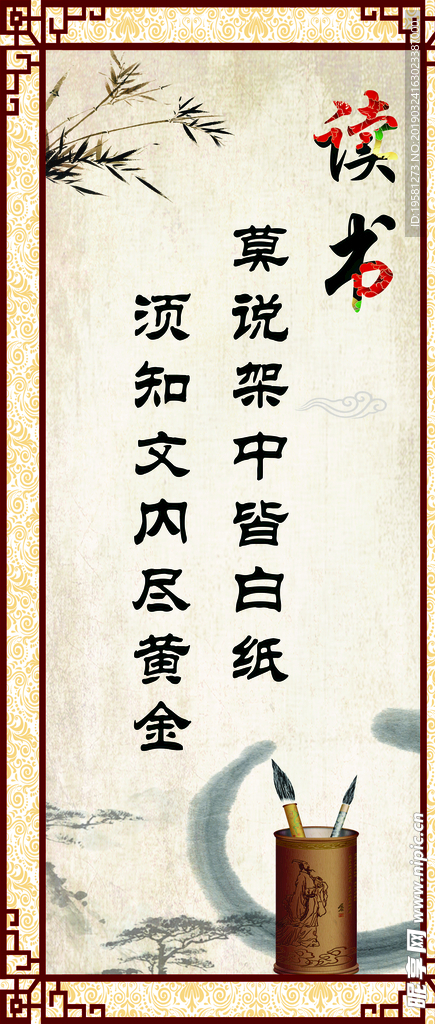 读书
莫说架中皆白纸
须知文内尽黄金
ID:19581273 NO:20190324163023387000
昵享网 www.nipic.cn